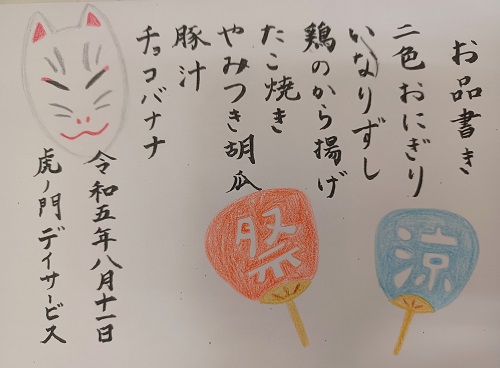 お品書き
二色おにぎり
いなりずし
鶏のから揚げ
たこ焼き
やみつき胡瓜
豚汁
チョコバナナ
令和五年八月十一日
虎ノ門デイサービス
祭
涼